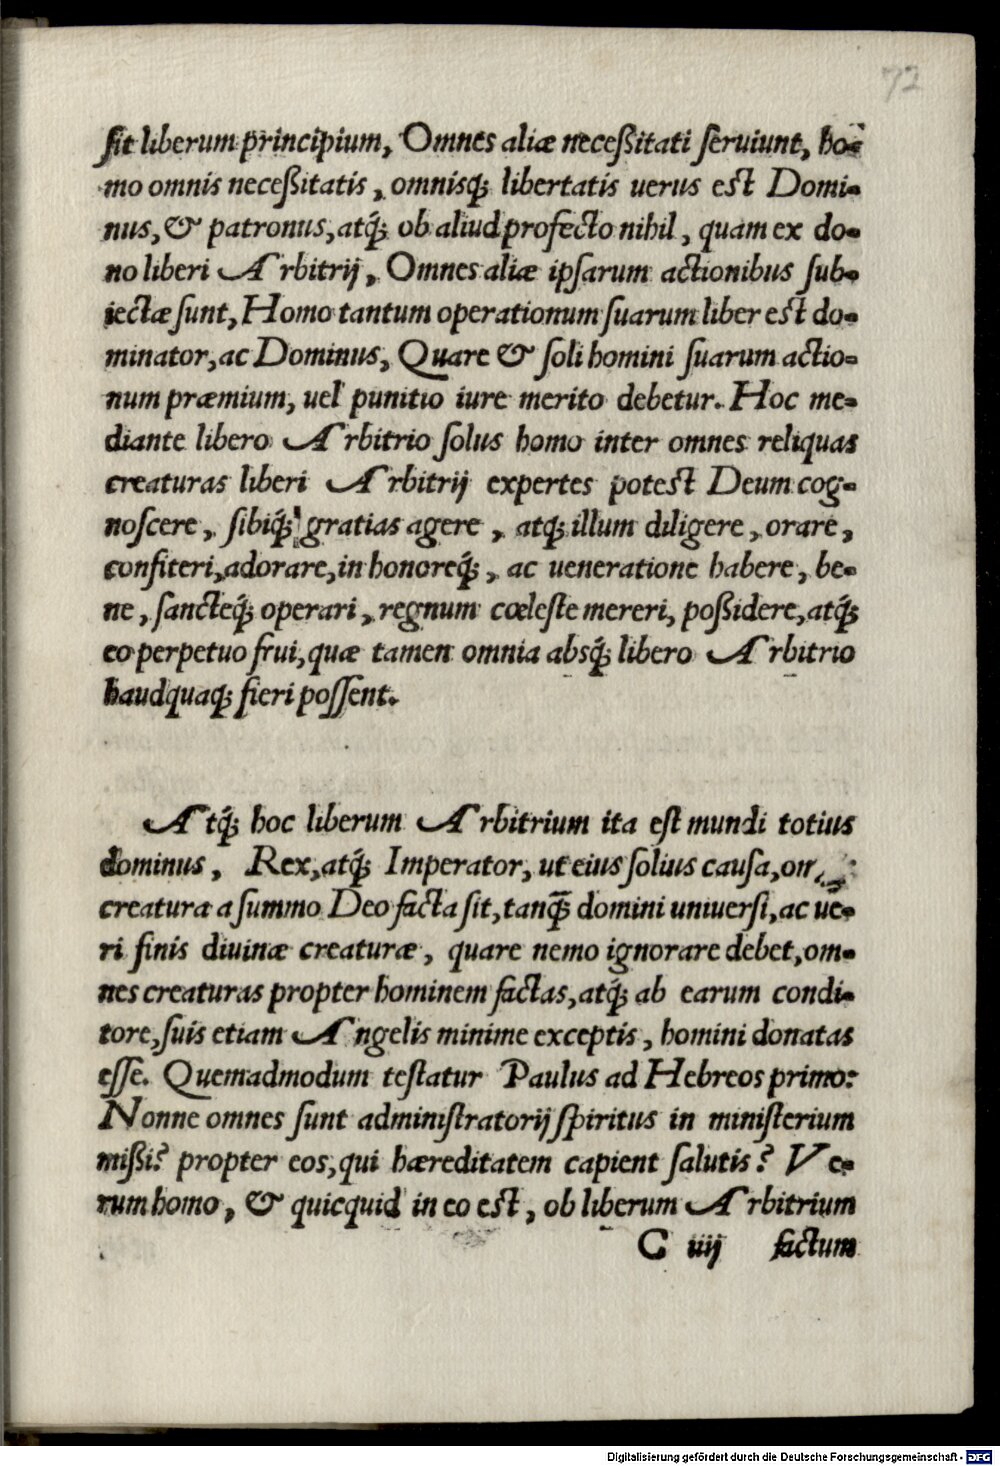 72
sit liberum principium, Omnes aliæ neceßitati seruiunt, ho-
mo omnis neceßitatis, omnisq́; libertatis uerus est Domi-
nus, & patronus, atq́; ob aliud profecto nihil, quam ex do-
no liberi Arbitrij, Omnes aliæ ipsarum actionibus sub-
iectæ sunt, Homo tantum operationum suarum liber est do-
minator, ac Dominus, Quare & soli homini suarum actio-
num præmium, uel punitio iure merito debetur. Hoc me-
diante libero Arbitrio solus homo inter omnes reliquas
creaturas liberi Arbitrij expertes potest Deum cog-
noscere, sibiq́; gratias agere, atq́; illum diligere, orare,
confiteri, adorare, in honoreq́;, ac ueneratione habere, be-
ne, sancteq́; operari, regnum cœleste mereri, poßidere, atq́;
eo perpetuo frui, quæ tamen omnia absq́; libero Arbitrio
haudquaq́; fieri possent.
Atq́; hoc liberum Arbitrium ita est mundi totius
dominus, Rex, atq́; Imperator, ut eius solius causa,
creatura a summo Deo facta sit, tanq̃; domini uniuersi, ac ue-
ri finis diuinæ creaturæ, quare nemo ignorare debet, om-
nes creaturas propter hominem factas, atq́; ab earum condi-
tore, suis etiam Angelis minime exceptis, homini donatas
esse. Quemadmodum testatur Paulus ad Hebreos primo:
Nonne omnes sunt administratorij spiritus in ministerium
mißi? propter eos, qui hæreditatem capient salutis? Ve-
rum homo, & quicquid in eo est, ob liberum Arbitrium
C iiij factum
Digitalisierung gefördert durch die Deutsche Forschungsgemeinschaft - DFG